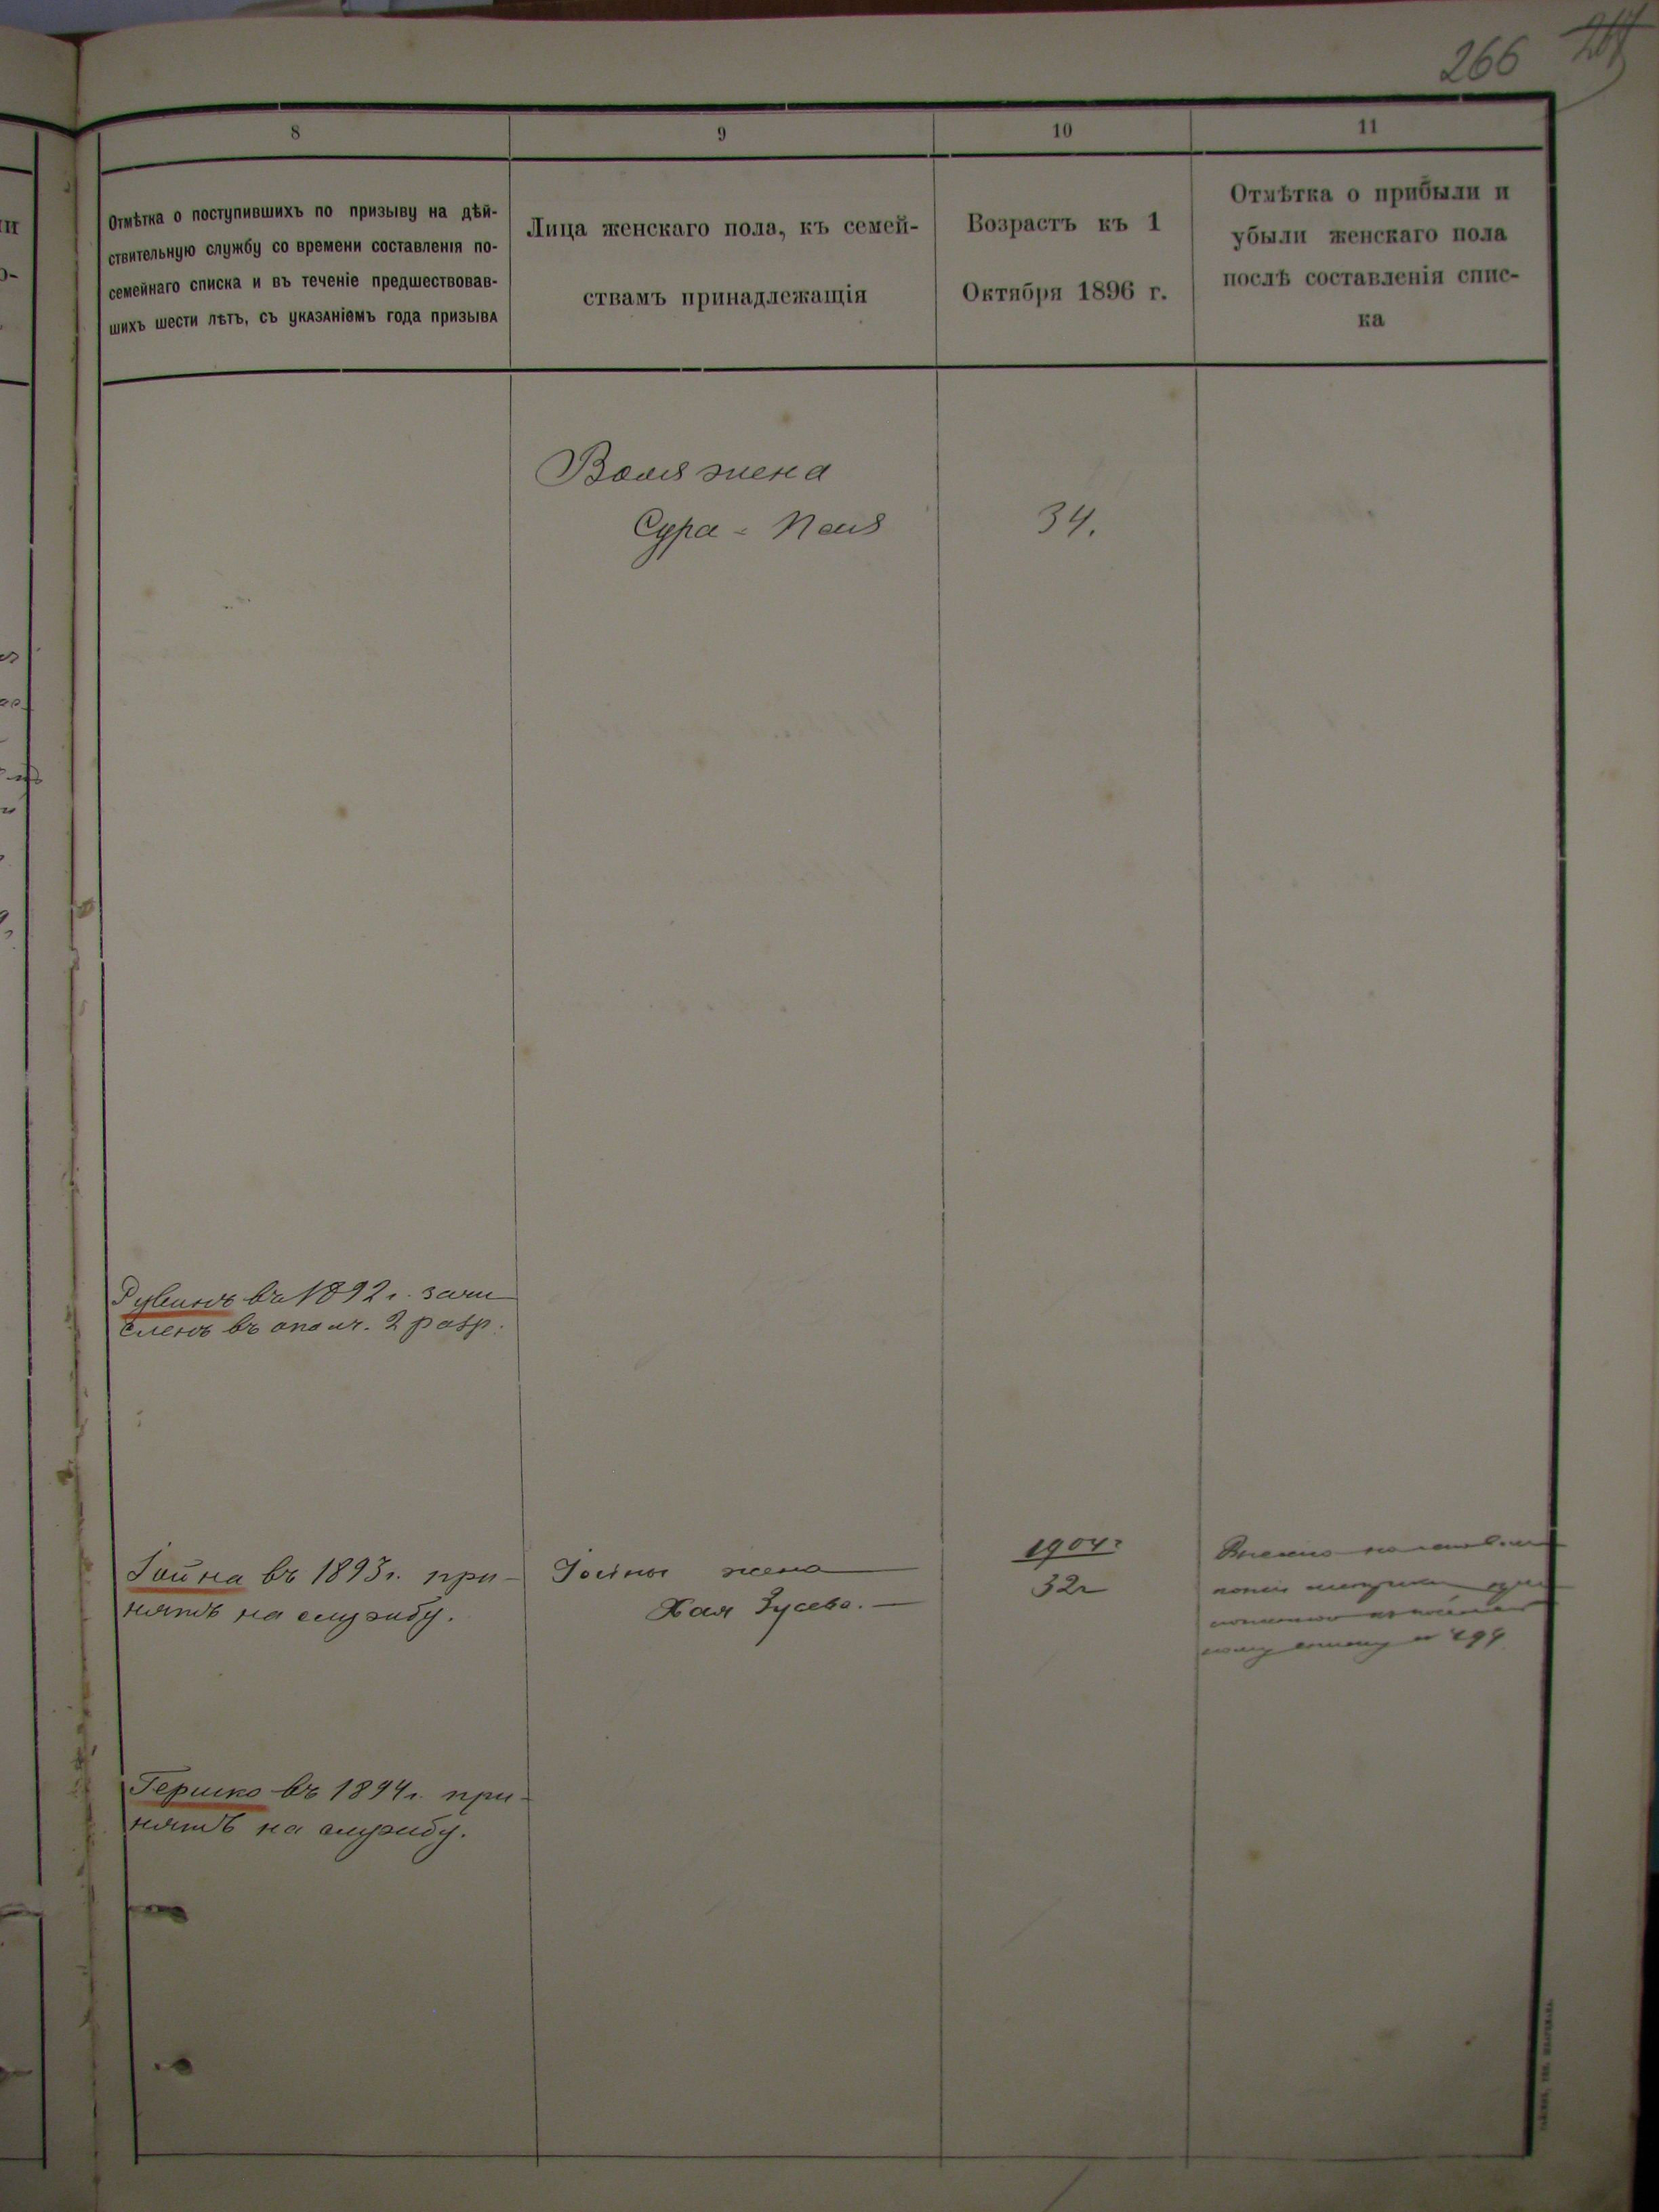 266
8
9
10
11
Отмѣтка о поступившихъ по призыву на дѣй-
ствительную службу со времени составленія по-
семейнаго списка и въ теченіе предшествовав-
шихъ шести лѣтъ, съ указаніемъ года призыва
Лица женскаго пола, къ семей-
ствамъ принадлежащія
Возрастъ къ 1
Октября 1896 г.
Отмѣтка о прибыли и
убыли женскаго пола
послѣ составленія спис-
ка
жена
Сура-
34.
Рувинъ въ 1892 г. зачи
сленъ въ ополч. 2 разр.
Іойна въ 1893 г. при-
нятъ на службу.
Іойны жена
Хая Зусева.
1904 г
32
Гершко въ 1894 г. при-
нятъ на службу.